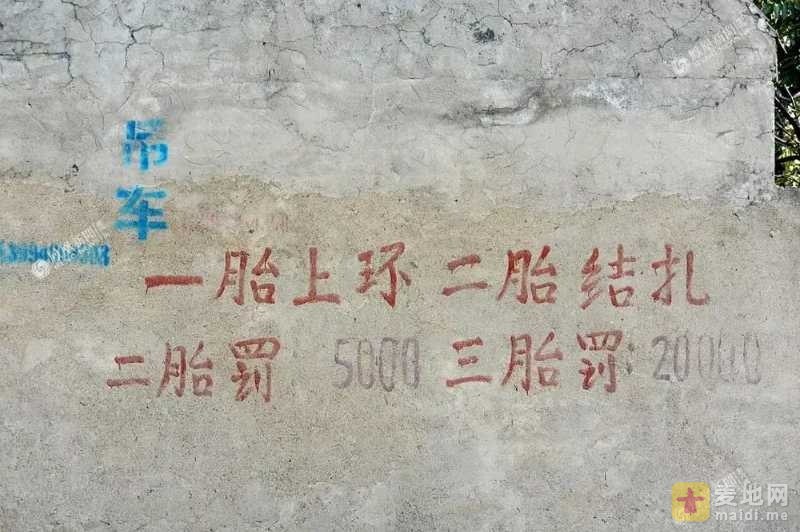 吊车
一胎上环 二胎结扎
二胎罚 5000 三胎罚:20000
麦地网
maidi.me